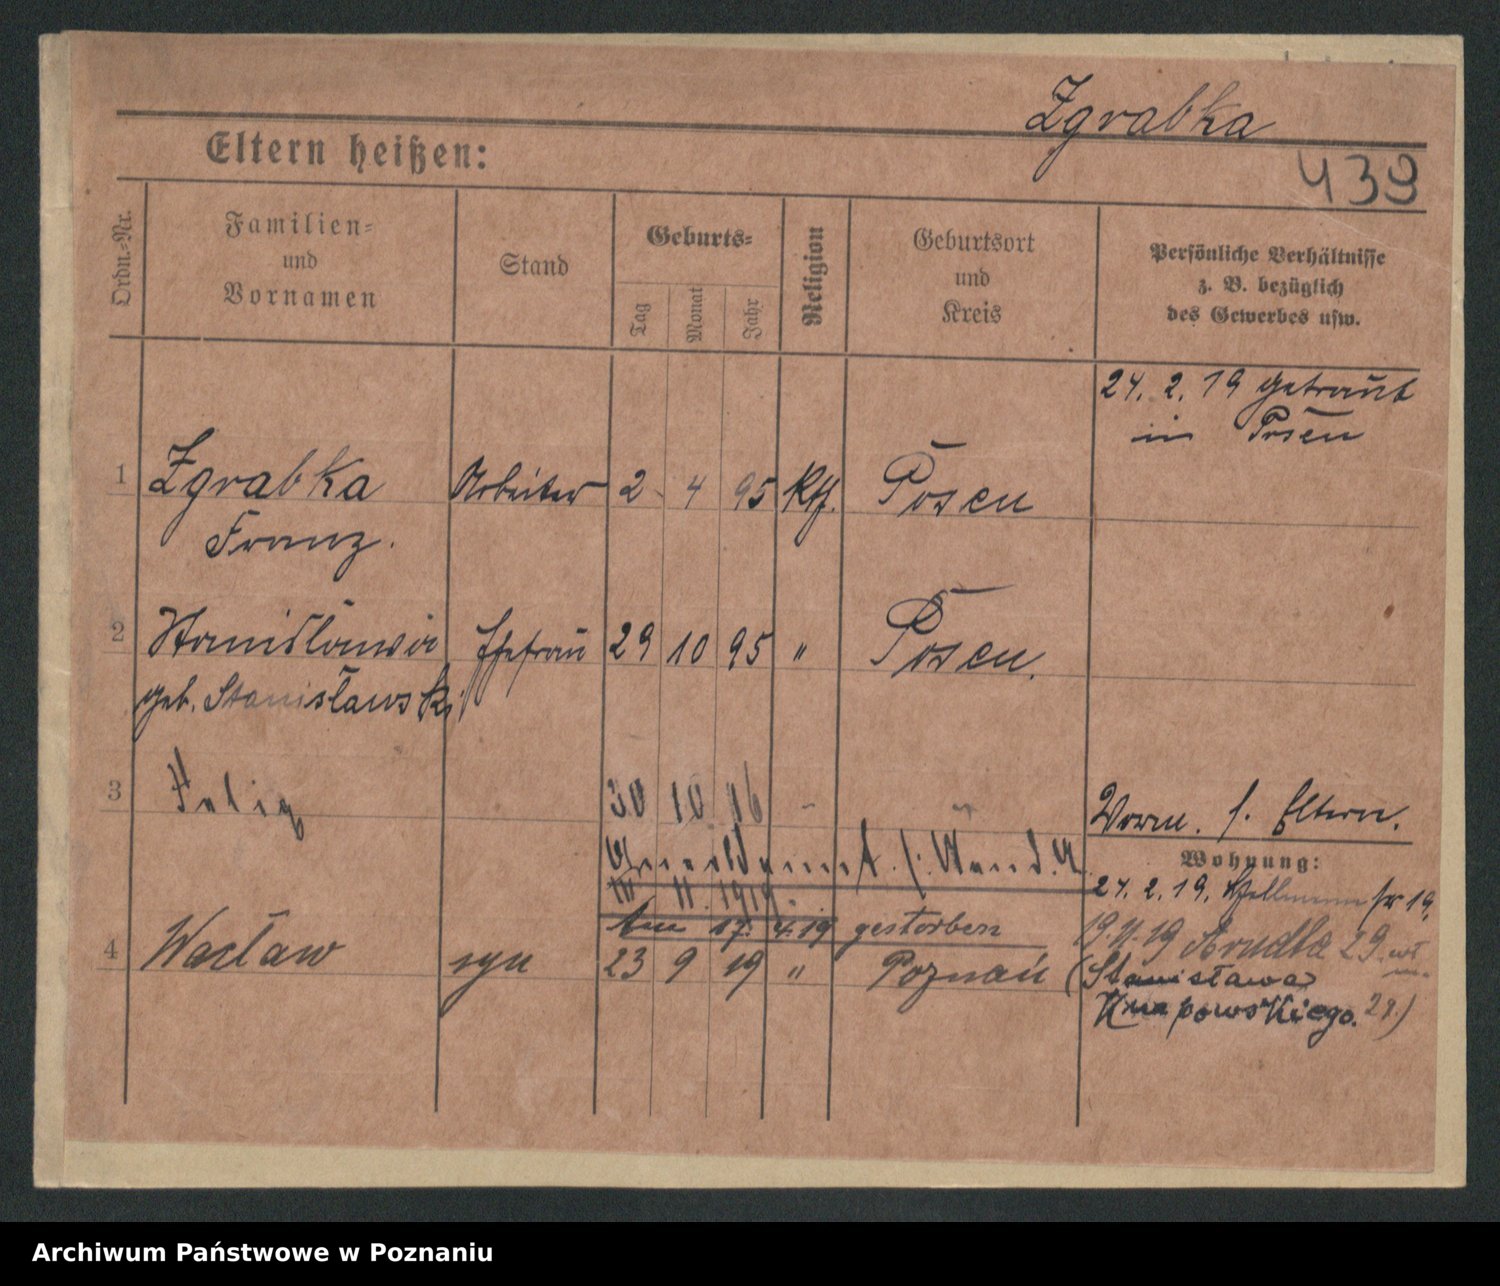 Zgrabka
Eltern heißen:
439
Ordn.-Nr.
Familien-
und
Vornamen
Stand
Geburts-
Tag
Monat
Jahr
Religion
Geburtsort
und
Kreis
Persönliche Verhältnisse
z. B. bezüglich
des Gewerbes usw.
24. 2. 19 getraut
in Posen
1 Zgrabka Arbeiter 2 4 95 Kth. Posen
Franz.
2 Stanislawa Ehefrau 29 10 95 " Posen.
geb. Stanisławski
3 30 10 16
Worm. s. Eltern.
Wohnung:
II. 1919.
24. 2. 19. 19.
am 17. 4. 19 gestorben
19 11 19 29
4 Wacław syn 23 9 19 " Poznań
(Stanisława
Knapowskiego. 29.)
Archiwum Państwowe w Poznaniu